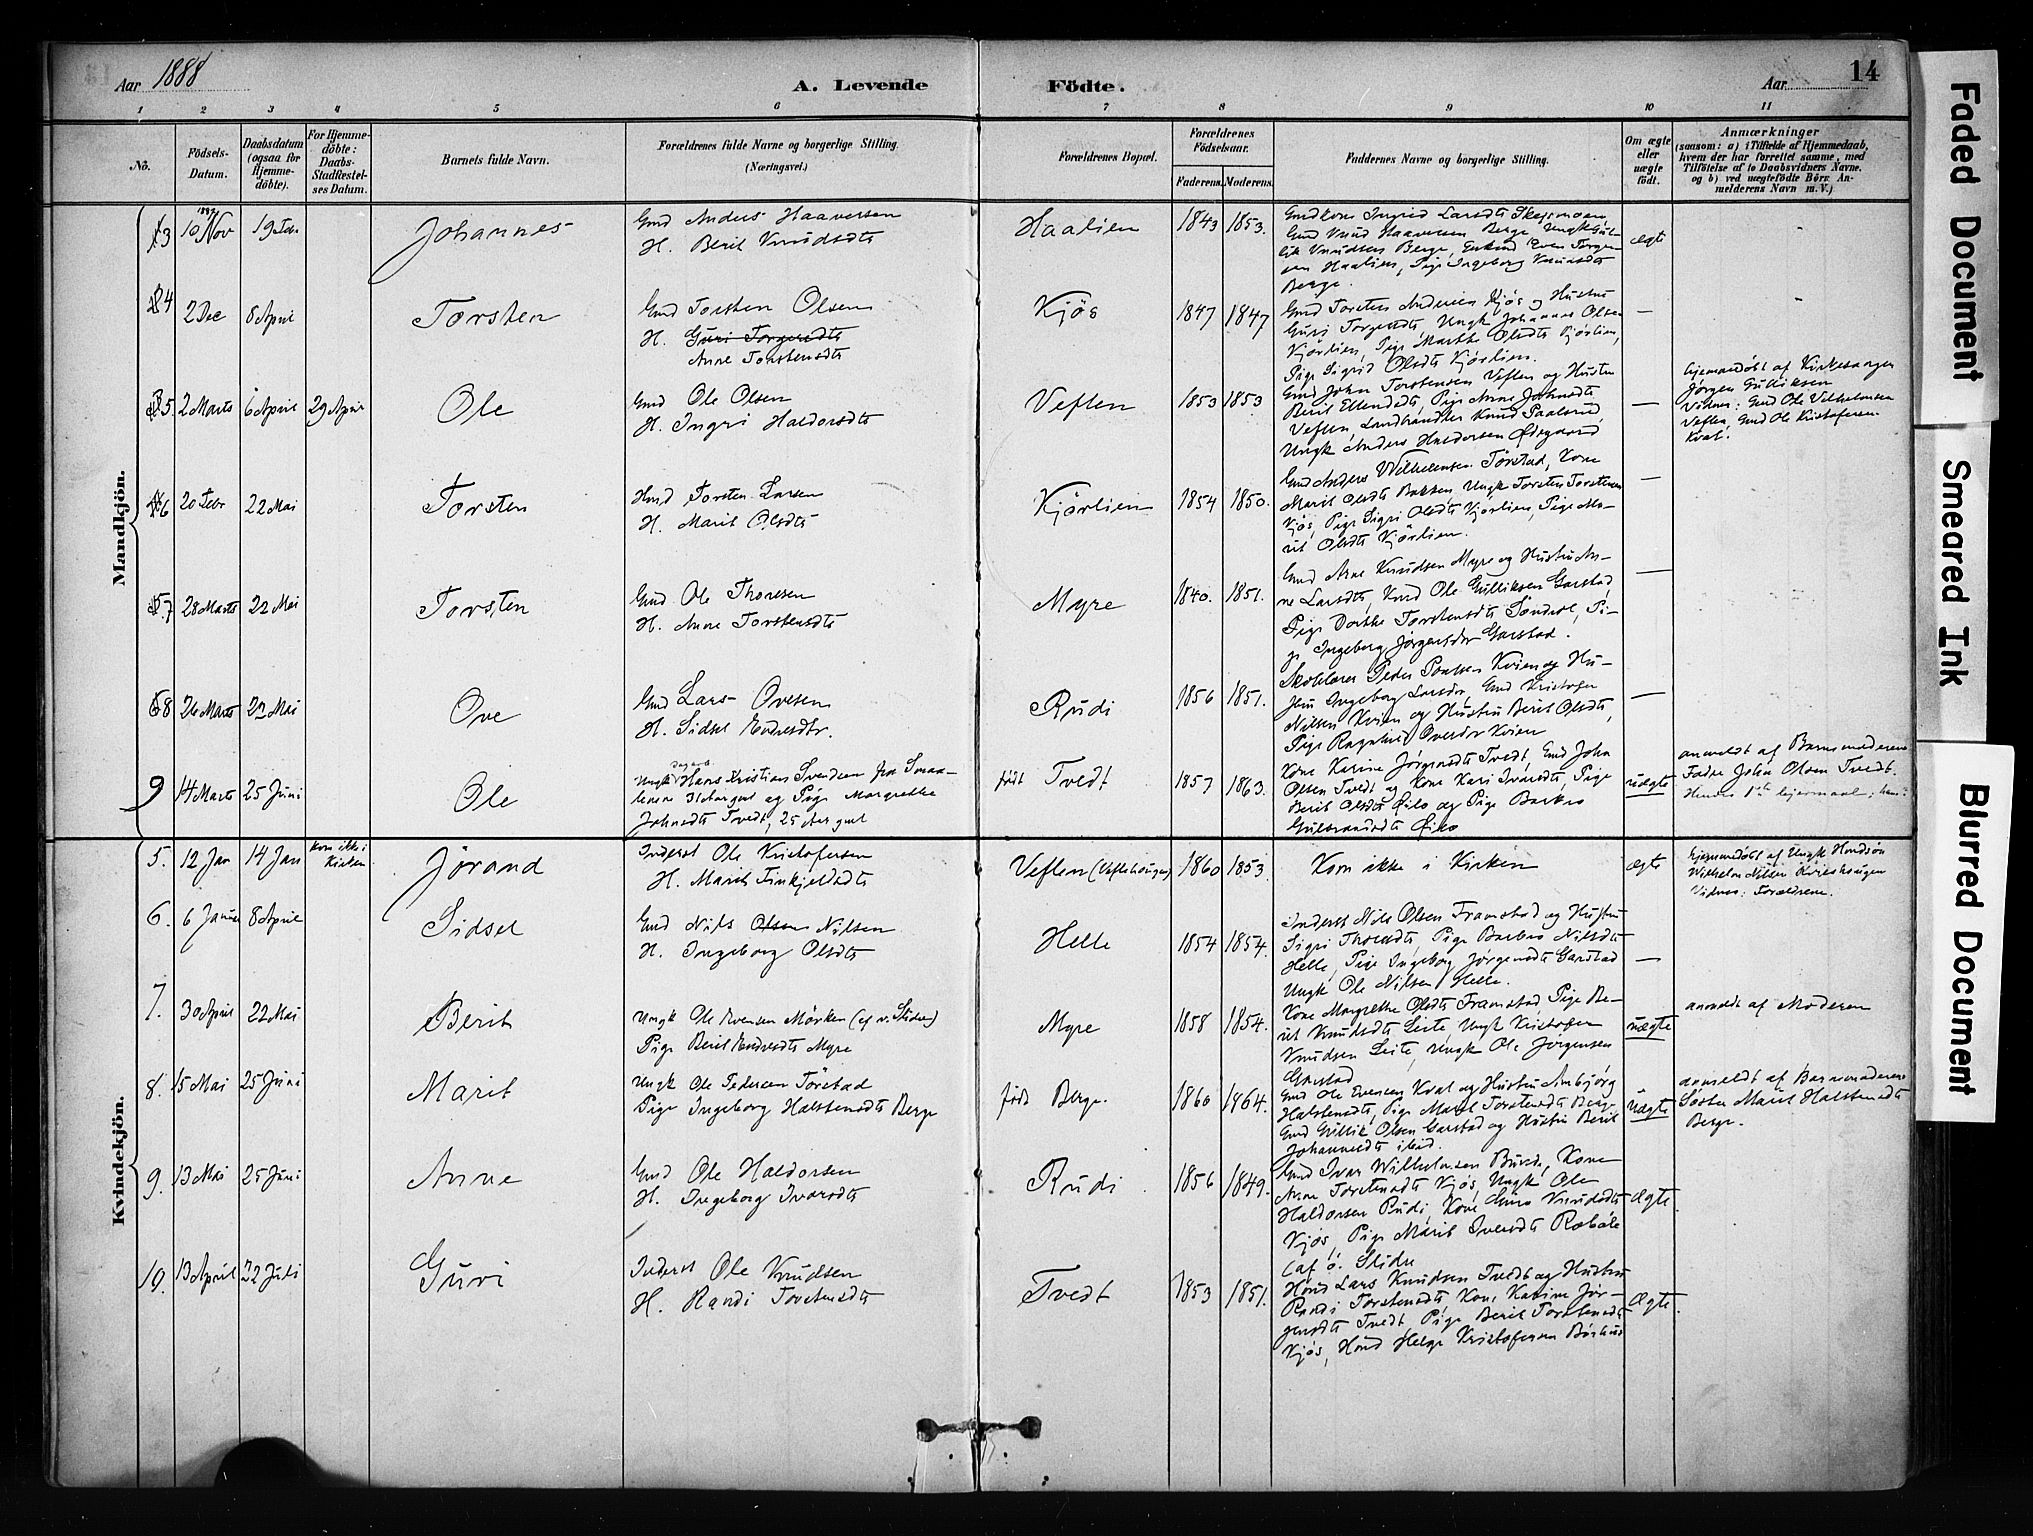 Aar 1888
A. Levende Födte.
Aar
14
1 2 3 4 5 6 7 8 9 10 11
No.
Födsels-
Datum.
Daabsdatum
(ogsaa for
Hjemme-
döbte).
For Hjemme-
döbte:
Daabs-
Stadfæstel-
ses Datum.
Barnets fulde Navn.
Forældrenes fulde Navne og borgerlige Stilling.
(Næringsvei.)
Forældrenes Bopæl.
Forældrenes
Födselsaar.
Faderens. Moderens.
Faddernes Navne og borgerlige Stilling.
Om ægte
eller
uægte
födt.
Anmærkninger
(saasom: a) i Tilfælde af Hjemmedaab,
hvem der har forrettet samme, med
Tilföielse af to Daabsvidners Navne,
og b) ved uægtefödte Börn An-
melderens Navn m. V.)
Mandkjön.
3 10 Nov 19 Feb Johannes
Gmd Anders Haaversen
H. Berit Knudsdtr
Haalien 1843 1853.
Gmdkone Ingrid Larsdtr
Gmd Knud Haaversen Berge, Ungk Gul-
lik Knudsen Berge, Enkmd Even Torger-
sen Haalien, Pige Ingeborg Knudsdtr
Berge.
ægte
4 2 Dec 8 April Torsten
Gmd Torsten Olsen
H. Guri Torgersdtr
Anne Torstensdtr
Kjös 1847 1847
Gmd Torsten Andersen Kjös og Hustru
Guri Torgersdtr, Ungk Johannes Olsen
Kjörlien, Pige Marthe Olsdtr Kjörlien,
Pige Sigrid Olsdtr Kjörlien.
—
5. 2 Marts 6 April 29 April Ole
Gmd Ole Olsen
H. Ingri Haldorsdtr
Veflen 1853 1853
Gmd John Torstensen Veflen og Hustru
Berit Ellendtr, Pige Anne Johnsdtr
Veflen, Landhandler Knud Paalsrud
Ungk Anders Haldorsen Ødegaard
—
hjemmedöbt af Kirkesanger
Jörgen Gulliksen
Vidner: Gmd Ole Vilhelmsen
Veflen, Gmd Ole Kristofersen
Kval.
6 20 Febr 22 Mai Torsten
Hmd Torsten Larsen
H. Marit Olsdtr
Kjörlien 1854 1850.
Gmd Anders Wilhelmsen Törstad, Kone
Marit Olsdtr Bakken, Ungk Torsten Torstensen
Kjös, Pige Sigri Olsdtr Kjörlien, Pige Ma-
rit Olsdtr Kjörlien.
—
7 28 Marts 22 Mai Torsten
Gmd Ole Thoresen
H. Anne Torstensdtr
Myre 1840. 1851.
Gmd Arne Knudsen Myre og Hustru An-
ne Larsdtr, Gmd Ole Gulliksen Garstad,
Pige Dorthe Torstensdtr Söndrol, Pi-
ge Ingeborg Jörgensdtr Garstad.
—
8 26 Marts 22 Mai Ove
Gmd Lars Ovesen
H. Sidsel Endresdtr.
Rudi 1856 1851.
Skolelærer Peder Paulsen Kvien og Hu-
stru Ingeborg Larsdtr, Gmd Kristofer
Nilsen Kvien og Hustru Berit Olsdtr,
Pige Ragnhild Ovesdtr Kvien
—
9 14 Marts 25 Juni Ole
Ungk Dagarb. Hans Kristian Svendsen fra Smaa-
lenene 31 August og Pige Margrethe
Johnsdtr Tvedt, 25 August
födt Tvedt 1857 1863.
Kone Karine Jörgensdtr Tvedt, Gmd John
Olsen Tvedt og Kone Kari Ivarsdtr, Pige
Berit Olsdtr Öilo og Pige Barbro
Gulbrandsdtr Öilo
uægte
anmeldt af Barnemoderens
Fader John Olsen Tvedt.
Hendes 1ste leiermaal;
Kvindekjön.
5. 12 Jan 14 Jan Kom ikke i
Kirken
Jörand
Inderst Ole Kristofersen
H. Marit Finkjeldsdtr
Veflen (Veflehaugen) 1860 1853
Kom ikke i Kirken
ægte
hjemmedöbt af Ungk
Wilhelm Nilsen Kvieshaugen
Vidner: Forældrene.
6. 6 Januar 8 April Sidsel
Gmd Nils Olsen Nilsen
H. Ingeborg Olsdtr
Helle 1854 1854.
Inderst Nils Olsen Framstad og Hustru
Sigri Thoresdtr, Pige Barbro Nilsdtr
Helle, Pige Ingeborg Jörgensdtr Garstad
Ungk Ole Nilsen Helle.
—
7. 30 April 22 Mai Berit
Ungk Ole Evensen Mörken (af v. Slidre)
Pige Berit Endresdtr Myre
Myre 1858 1854.
Kone Margrethe Olsdtr Framstad Pige Be-
rit Knudsdtr Leite, Ungk Kristofer
Knudsen Leite, Ungk Ole Jörgensen
Garstad
uægte
anmeldt af Moderen
8. 15 Mai 25 Juni Marit
Ungk Ole Pedersen Törstad
Pige Ingeborg Halstensdtr Berge
födt Berge. 1860 1864.
Gmd Ole Evensen Kval og Hustru Ambjörg
Halstensdtr, Pige Marit Torstensdtr Berge
Gmd Gullik Olsen Garstad og Hustru Berit
Johannesdtr ibid.
Uægte
anmeldt af Barnemoderens
Söster Marit Halstensdtr
Berge.
9. 13 Mai 25 Juni Anne
Gmd Ole Haldorsen
H. Ingeborg Ivarsdtr
Rudi 1856 1849.
Gmd Ivar Wilhelmsen Kone
Anne Torstensdtr Kjös, Ungk Ole
Haldorsen Rudi, Kone Guro Knudsdtr
Kjös, Pige Marit Iversdtr Roböle
(af ö. Slidre
Ægte
10. 13 April 22 Juli Guri
Inderst Ole Knudsen
H. Randi Torstensdtr
Tvedt 1853 1851.
Hmd Lars Knudsen Tvedt og Hustru
Randi Torstensdtr, Kone Karine Jör-
gensdtr Tvedt, Pige Berit Torstensdtr
Kjös, Hmd Helge Kristofersen
Ægte.
Faded Document
Smeared Ink
Blurred Document